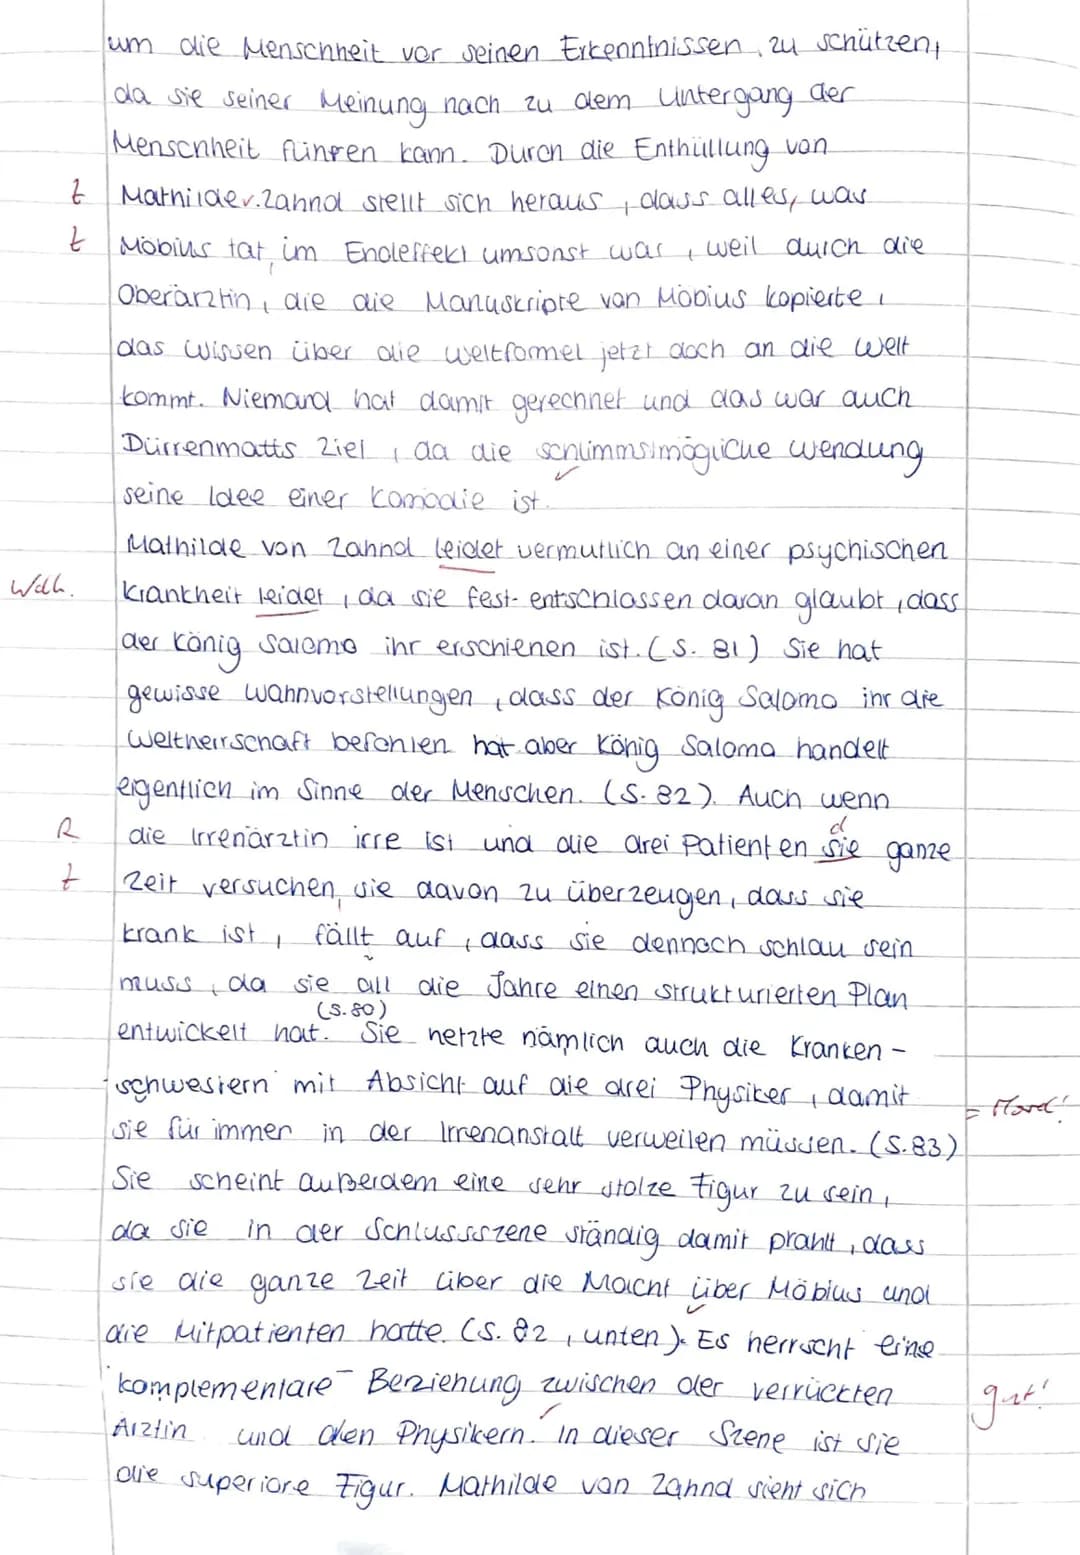 um die Menschheit vor seinen Erkenntnissen zu schützen,
da sie seiner Meinung nach zu dem Untergang der
Menschheit führen kann. Durch die Enthüllung von
Z Mathilde v. Zahnd stellt sich heraus, dass alles, was
Z Möbius tat, im Endeffekt umsonst war, weil durch die
Oberärztin, die die Manuskripte von Möbius kopierte,
das Wissen über die Weltformel jetzt doch an die Welt
kommt. Niemand hat damit gerechnet und das war auch
Dürrenmatts Ziel, da die schlimmstmögliche Wendung
seine Idee einer Komödie ist.
Mathilde von Zahnd leidet vermutlich an einer psychischen
Wdh. Krankheit leidet, da sie fest entschlossen daran glaubt, dass
der König Salomo ihr erschienen ist. (S. 81) Sie hat
gewisse Wahnvorstellungen, dass der König Salomo ihr die
Weltherrschaft befohlen hat aber König Salomo handelt
eigentlich im Sinne der Menschen. (S. 82). Auch wenn
d
R die Irrenärztin irre ist und die drei Patienten sie ganze
Z Zeit versuchen, sie davon zu überzeugen, dass sie
krank ist, fällt auf, dass sie dennoch schlau sein
muss, da sie all die Jahre einen strukturierten Plan
(S. 80)
entwickelt hat. Sie hetzte nämlich auch die Kranken-
schwestern mit Absicht auf die drei Physiker, damit
= Mord!
sie für immer in der Irrenanstalt verweilen müssen. (S. 83)
Sie scheint außerdem eine sehr stolze Figur zu sein,
da sie in der Schlussszene ständig damit prahlt, dass
sie die ganze Zeit über die Macht über Möbius und
die Mitpatienten hatte. (S. 82, unten). Es herrscht eine
komplementäre Beziehung zwischen der verrückten gut!
Ärztin und den Physikern. In dieser Szene ist sie
die superiore Figur. Mathilde von Zahnd sieht sich